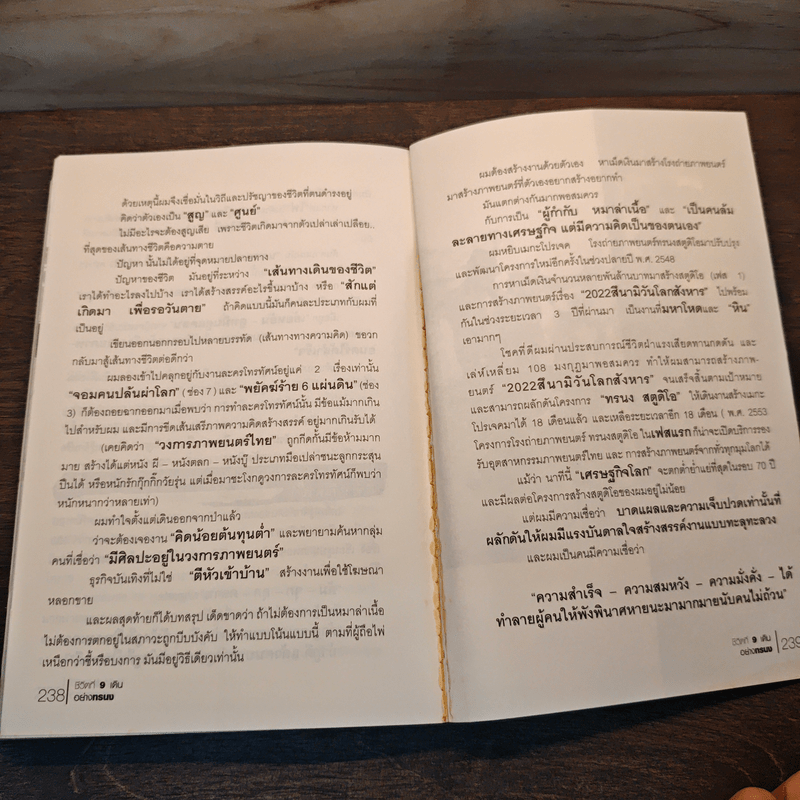 ด้วยเหตุนี้ผมจึงเชื่อมั่นในวิถีและปรัชญาของชีวิตที่ตนดำรงอยู่
คิดว่าตัวเองเป็น “สูญ” และ “ศูนย์”
ไม่มีอะไรจะต้องสูญเสีย เพราะชีวิตเกิดมาจากตัวเปล่าเล่าเปลือย..
ที่สุดของเส้นทางชีวิตคือความตาย
ปัญหา นั้นไม่ได้อยู่ที่จุดหมายปลายทาง
ปัญหาของชีวิต มันอยู่ที่ระหว่าง “เส้นทางเดินของชีวิต”
เราได้ทำอะไรลงไปบ้าง เราได้สร้างสรรค์อะไรขึ้นมาบ้าง หรือ “สักแต่
เกิดมา เพื่อรอวันตาย” ถ้าคิดแบบนี้มันก็คนละประเภทกับผมที่
เป็นอยู่
เขียนออกนอกกรอบไปหลายบรรทัด (เส้นทางทางความคิด) ขอวก
กลับมาสู่เส้นทางชีวิตต่อดีกว่า
ผมลองเข้าไปคลุกอยู่กับงานละครโทรทัศน์อยู่แค่ 2 เรื่องเท่านั้น
“จอมคนปล้นผ่าโลก” (ช่อง 7) และ “พยัคฆ์ร้าย 6 แผ่นดิน” (ช่อง
3) ก็ต้องถอยฉากออกมาเมื่อพบว่า การทำละครโทรทัศน์นั้น มีข้อแม้มากเกิน
ไปสำหรับผม และมีการขีดเส้นเสรีภาพความคิดสร้างสรรค์ อยู่มากเกินรับได้
(เคยคิดว่า “วงการภาพยนตร์ไทย” ถูกกีดกันมีข้อห้ามมาก
มาย สร้างได้แต่หนัง ผี – หนังตลก – หนังบู๊ ประเภทมือเปล่าชนะลูกกระสุน
ปืนได้ หรือหนักรักกุ๊กกิ๊กวัยรุ่น แต่เมื่อมาชะโงกดูวงการละครโทรทัศน์ก็พบว่า
หนักหนากว่าหลายเท่า)
ผมทำใจตั้งแต่เดินออกจากป่าแล้ว
ว่าจะต้องเจองาน “คิดน้อยต้นทุนต่ำ” และพยายามค้นหากลุ่ม
คนที่เชื่อว่า “มีศิลปะอยู่ในวงการภาพยนตร์”
ธุรกิจบันเทิงที่ไม่ใช่ “ตีหัวเข้าบ้าน” สร้างงานเพื่อใช้โฆษณา
หลอกขาย
และผลสุดท้ายก็ได้บทสรุป เด็ดขาดว่า ถ้าไม่ต้องการเป็นหมาล่าเนื้อ
ไม่ต้องการตกอยู่ในสภาวะถูกบีบบังคับ ให้ทำแบบโน้นแบบนี้ ตามที่ผู้ถือไพ่
เหนือกว่าชี้หรือบงการ มันมีอยู่วิธีเดียวเท่านั้น
238 ชีวิตที่ 9 เดิน
อย่างทรนง
ผมต้องสร้างงานด้วยตัวเอง หาเม็ดเงินมาสร้างโรงถ่ายภาพยนตร์
มาสร้างภาพยนตร์ที่ตัวเองอยากสร้างอยากทำ
มันแตกต่างกันมากพอสมควร
กับการเป็น “ผู้กำกับ หมาล่าเนื้อ” และ “เป็นคนล้ม
ละลายทางเศรษฐกิจ แต่มีความคิดเป็นของตนเอง”
ผมหยิบเมกะโปรเจค โรงถ่ายภาพยนตร์ทรนงสตูดิโอมาปรับปรุง
และพัฒนาโครงการใหม่อีกครั้งในช่วงปลายปี พ.ศ. 2548
การหาเม็ดเงินจำนวนหลายพันล้านบาทมาสร้างสตูดิโอ (เฟส 1)
และการสร้างภาพยนตร์เรื่อง “2022สึนามิวันโลกสังหาร” ไปพร้อม
กันในช่วงระยะเวลา 3 ปีที่ผ่านมา เป็นงานที่มหาโหดและ “หิน”
เอามากๆ
โชคที่ดีผมผ่านประสบการณ์ชีวิตฝ่าแรงเสียดทานกดดัน และ
เล่ห์เหลี่ยม 108 มงกุฎมาพอสมควร ทำให้ผมสามารถสร้างภาพ-
ยนตร์ “2022สึนามิวันโลกสังหาร” จนเสร็จสิ้นตามเป้าหมาย
และสามารถผลักดันโครงการ “ทรนง สตูดิโอ” ให้เดินงานสร้างเมกะ
โปรเจคมาได้ 18 เดือนแล้ว และเหลือระยะเวลาอีก 18 เดือน ( พ.ศ. 2553
โครงการโรงถ่ายภาพยนตร์ ทรนงสตูดิโอ ในเฟสแรก ก็น่าจะเปิดบริการรอง
รับอุตสาหกรรมภาพยนตร์ไทย และ การสร้างภาพยนตร์จากทั่วทุกมุมโลกได้
แม้ว่า นาทีนี้ “เศรษฐกิจโลก” จะตกต่ำย่ำแย่ที่สุดในรอบ 70 ปี
และมีผลต่อโครงการสร้างสตูดิโอของผมอยู่ไม่น้อย
แต่ผมมีความเชื่อว่า บาดแผลและความเจ็บปวดเท่านั้นที่
ผลักดันให้ผมมีแรงบันดาลใจสร้างสรรค์งานแบบทะลุทะลวง
และผมเป็นคนมีความเชื่อว่า
“ความสำเร็จ – ความสมหวัง – ความมั่งคั่ง – ได้
ทำลายผู้คนให้พังพินาศหายนะมามากมายนับคนไม่ถ้วน”
ชีวิตที่ 9 เดิน
อย่างทรนง 239